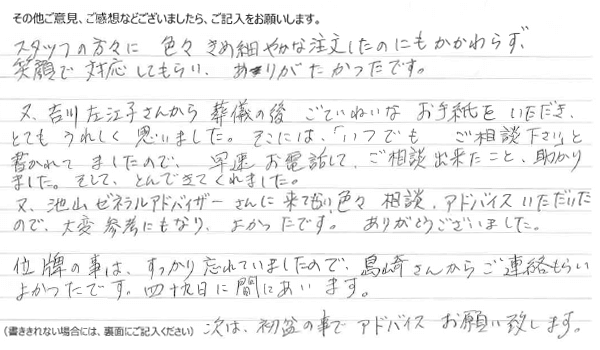 その他ご意見、ご感想などございましたら、ご記入をお願いします。
スタッフの方々に 色々 きめ細やかな注文したのにもかかわらず、
笑顔で 対応してもらい、ありがたかったです。
又、吉川左江子さんから 葬儀の後 ごていねいな お手紙を いただき、
とても うれしく 思いました。そこには、「いつでも ご相談下さい」と
書かれて ましたので、早速 お電話して、ご相談出来たこと、助かり
ました。そして、とんできてくれました。
又、池山ゼネラルアドバイザー さんに 来てもらい色々 相談、アドバイスいただいた
ので、大変 参考にもなり、よかったです。 ありがとうございました。
位牌の事は、すっかり忘れていましたので、島崎さんからご連絡もらい
よかったです。四十九日に間にあいます。
(書ききれない場合には、裏面にご記入ください) 次は、初盆の事で アドバイス お願い致します。